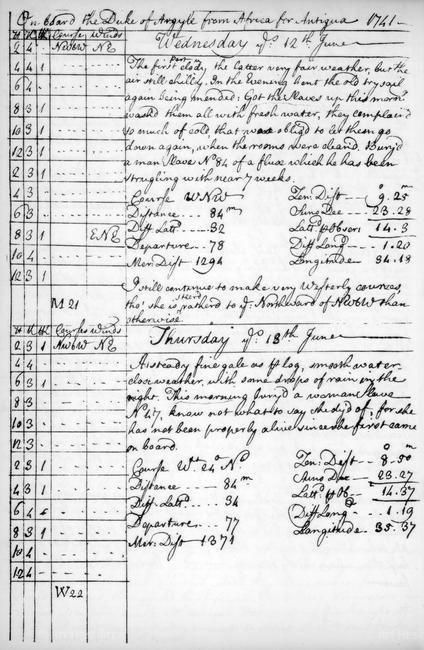 On board the Duke of Argyle from Africa for Antigua 1741
H K Hf Courses Winds
2 4 NWbW NE Wednesday ye. 12th June
4 4 1 The first Part clody the latter very fair weather, but the
6 4 air still chilly. In the Evening bent the old try sail
again being mended: Got the Slaves up this morn
8 3 1 washd them all with fresh water, they complain'd
10 3 1 so much of cold that was oblig'd to let them go
12 3 1 down again, when the rooms were cleand. Bury'd
2 3 1 a man slave No 84 of a flux which he has been
strugling with near 7 weeks.
4 3 Course WNW Zen: Dist 9.25
6 3 Distance 84m Suns Dec 23.28
8 3 1 ENE Diff Latd 32 Latd p Obser: 14.3
10 4 Departure 78 Diff Longd 1.20
12 3 1 Mer: Dist 1294 Longitude 34.18
I still continue to make very Westerly courses,
M 21 tho' she is steerd rather to ye. Northward of NWbW than
otherwise.
H K Hf Courses Winds
2 3 1 NWbW NE Thursday ye. 13th June
4 4 A steady fine gale as p log, smooth water
6 3 1 close weather, with some drops of rain in the
8 3 night. This morning bury'd a woman slave
No 47. know not what to say she dy'd of, for she
10 3 has not been properly alive since she first came
12 3 on board.
2 3 1 Course Wt. 24 No. Zen: Dist 8.50
4 3 1 Distance 84m Suns Dec 23.27
6 4 Diff. Latd. 34 Latd. p Ob 14.37
8 3 1 Departure 77 Diff Long 1.19
10 4 Mer: Dist 1371 Longitude 35.37
12 4
W 22